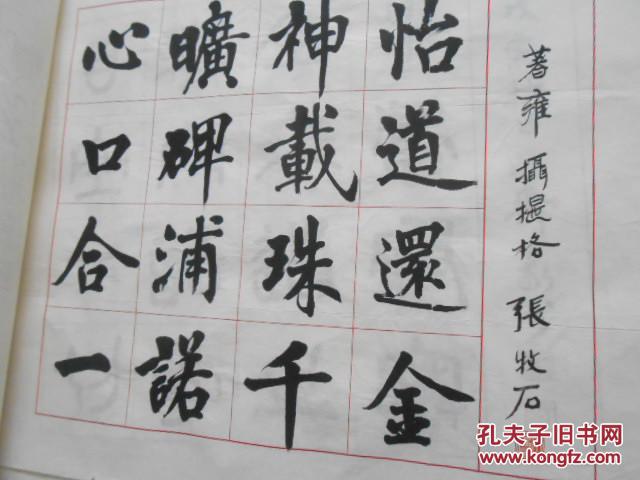 心曠神怡
口碑載道
合浦珠還
一諾千金
著雍 攝提格 張牧石
孔夫子旧书网
www.kongfz.com